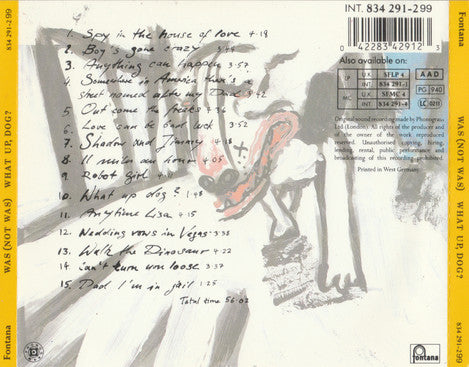 Fontana WAS (NOT WAS) WHAT UP, DOG? 834 291-299
INT. 834 291-299
0 42283 42912 3
Also available on:
LP U.K. SFLP 4
INT. 834 291-1
MC U.K. SFMC 4
INT. 834 291-4
AAD
PG 940
LC 0211
Original sound recording made by Phonogram
Ltd (London). All rights of the producer and
of the owner of the work reproduced
reserved. Unauthorised copying, hiring,
lending, rental, public performance and
broadcasting of this recording prohibited.
Printed in West Germany
1. Spy in the house of love 4.18
2. Boy's gone crazy
3. Anything can happen 3.57
4. Somewhere in America there's a
street named after my Dad
5. Out come the freaks
6. Love can be bad luck 3:52
7. Shadow and Jimmy
8. 11 miles an hour 4:05
9. Robot girl
10. What up dog?
11. Anytime Lisa 4.15
12. Wedding vows in Vegas
13. Walk the Dinosaur 4:22
14. I can't turn you loose 3:37
15. Dad I'm in jail 1:25
Total time 56:02
fontana
Fontana WAS (NOT WAS) WHAT UP, DOG? 834 291-299